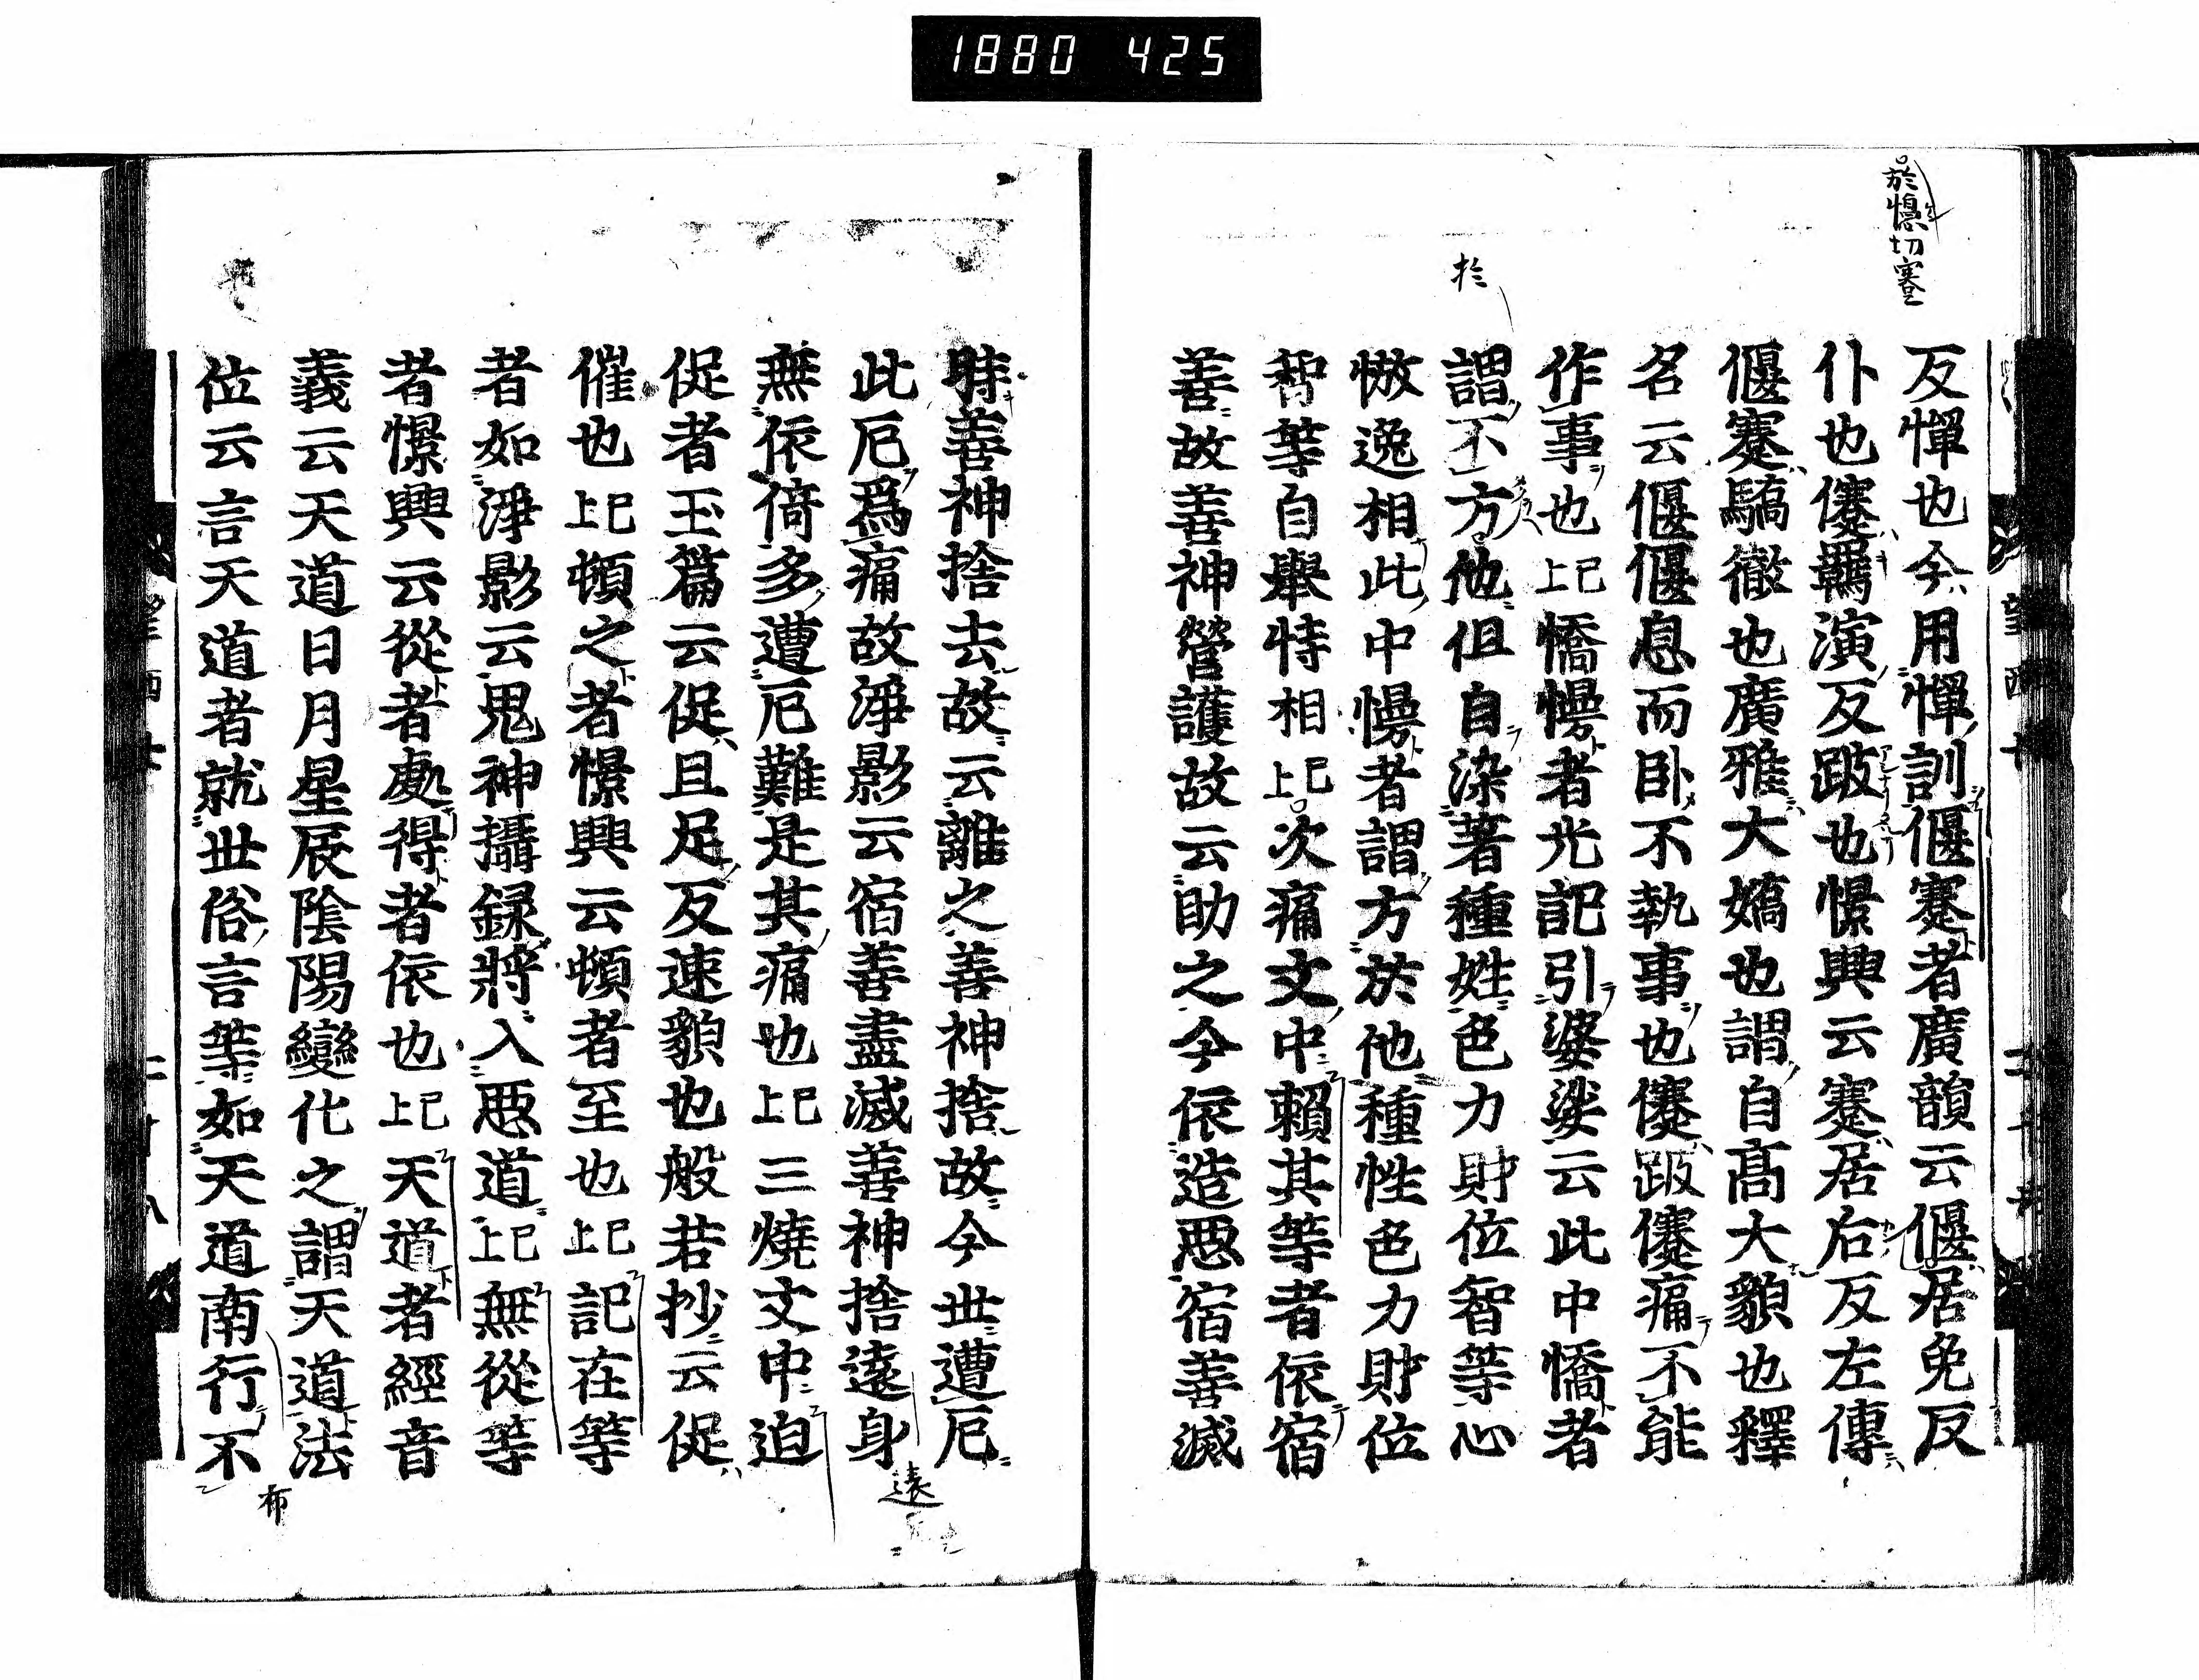 1880 425
於㒚切蹇
反憚也今用憚訓偃蹇者廣韻云偃居免反
仆也㒄羈演反跛也憬興云蹇居右反左傳
偃蹇驕慠也廣雅大嬌也謂自髙大貌也釋
名云偃偃息而卧不執事也㒄跛㒄痛不能
作事也已上憍慢者光記引婆娑云此中憍者
於
謂不方他但自染著種姓色力財位智等心
慠逸相此中慢者謂方於他種性色力財位
智等自舉恃相已上次痛文中賴其等者依宿
善故善神營護故云助之今依造惡宿善滅
時善神捨去故云離之善神捨故今世遭厄
此厄爲痛故淨影云宿善盡滅善神捨遠身
遠
無依倚多遭厄難是其痛也已上三燒文中迫
促者玉篇云促且足反速貌也般若抄云促
催也已上頓之者憬興云頓者至也已上記在等
者如淨影云鬼神攝録將入惡道已上無從等
者憬興云從者處得者依也已上天道者經音
義云天道日月星辰陰陽變化之謂天道法
位云言天道者就世俗言等如天道南行不
布